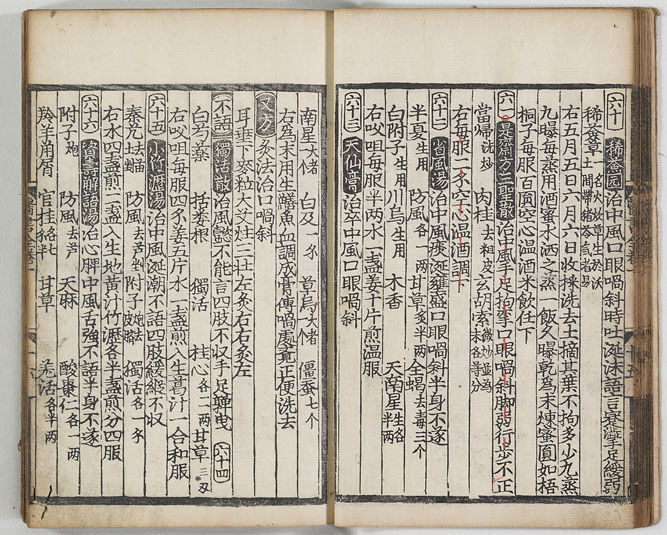 六十 豨薟圓 治中風口眼喎斜時吐涎沫語言蹇澁手足緩弱
豨薟草 一名火杴草生於沃土間帶猪苓氣者
右五月五日六月六日收採洗去土摘其葉不拘多少九蒸
九曝每蒸用酒蜜水洒之蒸一飯久曝乾爲末煉蜜圓如梧
桐子每服百圓空心温酒米飲任下
六一 是齋方二聖散 治中風手足拘攣口眼喎斜脚弱行步不正
當歸 洗炒 肉桂 去粗皮 玄胡索 微炒並爲末各等分
右每服二錢空心温酒調下
六十二 省風湯 治中風痰涎壅盛口眼喎斜半身不遂
半夏 生用 防風 各一两 甘草 炙半两 全蝎 去毒三个
白附子 生用 川烏 生用 木香 天南星 生各半两
右㕮咀每服半两水一盞姜十片煎温服
六十三 天仙膏 治卒中風口眼喎斜
南星 大者 白及 一錢 草烏 大者 僵蚕 七个
右爲末用生鱔魚血調成膏傅喎處竟正便洗去
又方 灸法治口喎斜
耳垂下麥粒大艾炷三壯左灸右右灸左
不語 獨活散 治風懿不能言四肢不收手足軃曳 六十四
白芍藥 括蔞根 獨活 桂心 各一两 甘草 三
右㕮咀每服四錢姜五片水一盞煎入生葛汁一合和服
六十五 小竹瀝湯 治中風涎潮不語四肢緩縱不收
秦艽 防風 去芦 附子 炮 獨活 各一錢
右水四盞煎二盞入生地黄汁竹瀝各半盞煎分四服
六十六 解語湯 治心脾中風舌強不語半身不遂
附子 炮 防風 去芦 天麻 酸棗仁 各一两
羚羊角屑 官桂 甘草 羌活 各半两